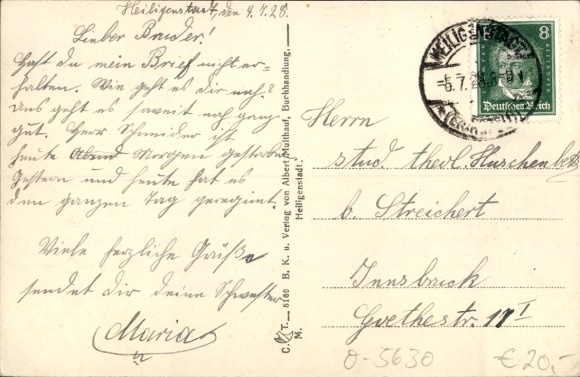 Heiligenstadt, den 4.7.28.
Lieber Bruder!
Hast du mein Brief nicht er-
halten. Wie geht es dir noch?
Uns geht es soweit noch ganz
gut. Herr Schneider ist
heute Abend Morgen gestorben
Gestern und heute hat es
den ganzen Tag geregnet.
Viele herzliche Grüße
sendet dir deine Schwester
Maria
C. T. 5160 B. K. u. Verlag von Albert Multhauf, Buchhandlung,
M. Heiligenstadt.
HEILIGENSTADT
5.7.28
8
Deutsches Reich
Herrn
stud. theol. Huschenbett
b. Streichert
Innsbruck
Goethestr. 11 I
0-5630
€ 20,-